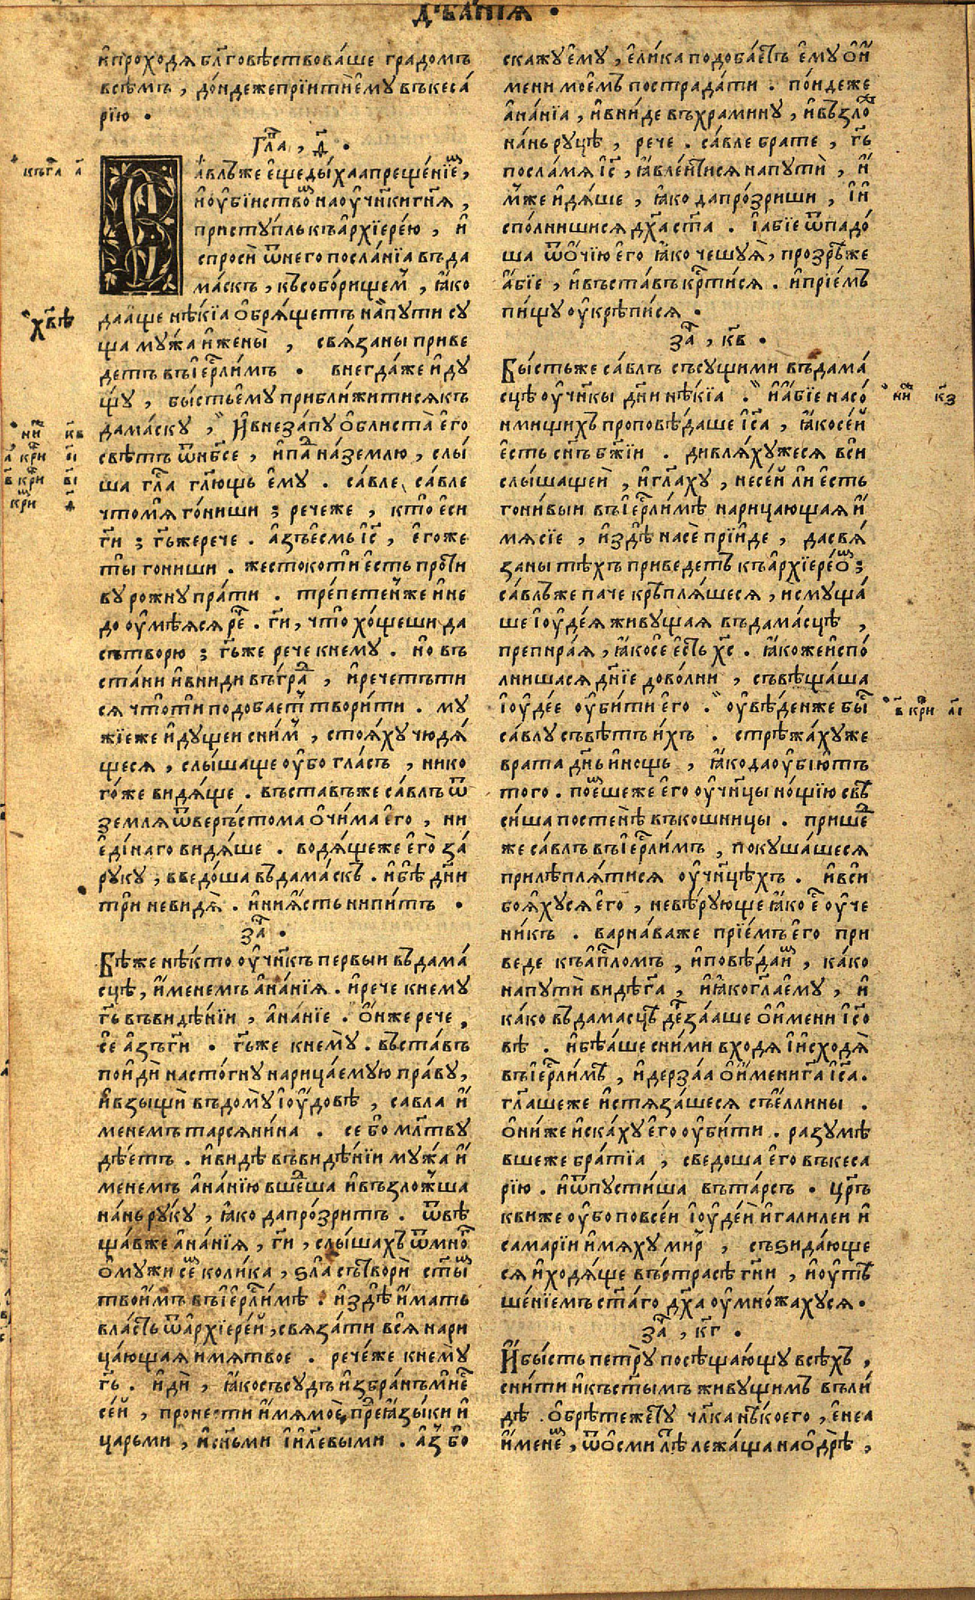 дѣѧ҆нїѧ .
и҆проходѧ бл҃говѣствова́ше градомъ
всѣ́мъ , до́ндежепрїи́тиє҆му въкеса́
рїю .
гл҃а , д҃ .
а́влъже є҆щеды́хаапреще́нїє ,
и҆оу҆бі́иство наоу҆чн҃киги҃ѧ ,
приступлькъа҆рхїере́ю , и҆
спроси̾ ѿнего посланїа въда
ма́скъ , късобо́рищем , ꙗ҆́ко
даа҆́ще нѣ́кїа о҆брѧ́щетъ напути су
ща му́жа и҆жены̀ , свѧ́заны приве
детъ въі҆ерⷭ҇ли́мъ . внегда́же и҆ду
щу , бы́стьє҆му прибли́житисѧкъ
дама́ску , И҆внеза́пу ѻ҆блиста̀ є҆го
свѣ́тъ ѿнб҃се , и҆па́ на́землю , слы́
ша гл҃а гл҃ющь є҆му . са́вле , са́вле
чтомѧ̀ го́ниши ; речеже , кто̀ є҆си
ги҃ ; гь҃жерече . а҆зъє҆смь і҆с҃ , є҆гоже
ты̀ гониши . жестокоти є҆сть про́ти
ву рожну пра́ти . трепетенже и҆не
до оу҆мѣ́ѧсѧ ре҃ . ги҃ , что̀ хо́щеши да
сътворю ; гь҃же рече кнему . но въ
ста́ни и҆вниди въгра , и҆речетъти
сѧ что̀ти подобает твори́ти . му
жїеже и҆дущеи сним , стоѧ́ху чюдѧ́
щесѧ , слы́шаще оу҆бо гла́съ , нико
го́же видѧще . въставъже са́влъ ѿ
землѧ ѿверъ́стома ѻ҆чи́ма его , ни
є҆ді́наго видѧ́ше . водѧ́щеже є҆го̀ за́
руку , введо́ша въдама́скъ . и҆бѣ̀ дн҃и
трѝ невидѧ̀ . и҆ниꙗ҆́сть нипи́тъ .
за҃ .
Бѣ́же нѣ́кто оу҆чн҃къ первыи въдама́
сцѣ , и҆́менемъ а҆на́нїѧ . и҆рече кнему
гь҃ въвидѣ́нїи , а҆на́нїе . ѻ҆́нже рече ,
сѐ а҆зъги҃ . гь҃же кнему̀ . въста́въ
поидѝ насто́гну нарица́емую пра́ву ,
и҆взыщѝ въдому̀ і҆оу́довѣ , савла и҆́
менемъ тарсѧни́на . се бо мл҃тву
дѣ́етъ . и҆видѣ въвидѣ́нїи му́жа и҆́
менемъ а҆на́нїю вшеша и҆възло́жша
на́ньру́ку , ꙗ҆́ко дапро́зритъ . ѿвѣ
ща́вже а҆на́нїѧ , ги҃ , слы́шахъ ѿмно́г
ѻ҆му́жи сем̾ коли́ка , ѕла̀ сътворѝ ст҃ы
твои̂мъ въі҆ерⷭ҇ли́мѣ . и҆здѣ̀ и҆́мать
вла́сть ѿа҆рхїере́й , свѧза́ти всѧ̀ нари
ца́ющаѧ имѧтвое . рече́же кнему̀
гь҃ . и҆дѝ , ꙗ҆́косъсудъ и҆збра́нъмнѐ
се́и , проне́сти и҆́мѧмоѐ пре́ꙗзы́ки и҆
царьми , и҆сн҃ьми і҆и҃левыми . а҆́з бо
скажу є҆му , є҆ли́ка подобае́тъ є҆му ѻ҆и҆́
мени мое́мъ постра́дати . по́идеже
а҆на́нїа , и҆вни́де въхра́мину , и҆възло́
на́ньруцѣ , рече . са́вле брате , гь҃
посла́мѧ і҆с҃ , ꙗ҆влеи́тисѧ напутѝ , и҆́
мже и҆дѧ́ше , ꙗ҆ко дапро́зриши , і҆и҆
спо́лнишисѧ дх҃а ст҃а . і҆а҆бїе ѿпадо́
ша ѿѻ҆чїю его ꙗ҆́ко чешуѧ̀ , прозрѣ́же
а҆́бїе , и҆въста́въ кр҃тисѧ . и҆прїе́мъ
пи́щу оу҆крѣ́писѧ .
за҃ , кв҃ .
Бы́стьже са́влъ съсущими въдама́
сцѣ оу҆чн҃кы дн҃и нѣ́кїа . и҆а҆бїе насо́
нмищихъ проповѣ́даше і҆с҃а , ꙗ҆косе́й
є҆́сть сн҃ъ бж҃їи . дивлѧ́хужесѧ вси
слы́шащеи , и҆гл҃аху , несе́й ли є҆сть
гони́выи въі҆ерⷭ҇ли́мѣ нарицающаѧ и҆́
мѧсїе , и҆здѣ̀ насѐ прїи́де , дасвѧ́
заны тѣ́хъ приведетъ къа҆рхїере́ѻ ;
са́влъже паче крѣплѧ́шесѧ , и҆сму́ща
ше і҆оу҆де́ѧ живущаѧ въдама́сцѣ ,
препира́ѧ , ꙗ҆́косе є҆сть хс҃ . ꙗ҆́кожеиспо́
лнишасѧ дн҃їе дово́лни , съвѣща́ша
і҆оу҆де́е оу҆би́ти его . оу҆вѣ́денже бы
са́влу съвѣ́тъ и҆́хъ . стрѣжа́хуже
врата̀ дн҃ь и҆но́щь , ꙗ҆́кодаоу҆бїю́тъ
того . по́емшеже его оу҆чн҃цы но́щїю свѣ́
сиша постенѣ̀ въкошницы . прише
же са́влъ въі҆ерⷭ҇ли́мъ , покуша́шесѧ
прилѣплѧ́тисѧ оу҆чн҃цѣхъ . и҆вси
боѧ́хусѧ его , невѣ́рующе ꙗ҆́ко е҃ оу҆че
ни́къ . варна́важе прїе́мъего при
веде къа҆пⷭ҇ломъ , и҆повѣ́даи , ка́ко
напутѝ видѣ̀ га҃ , и҆ꙗ҆́когл҃аему , и҆
ка́ко въдама́сцѣ де́рзааше ѻ҆и҆́мени і҆с҃о
вѣ . и҆бѣ́аше сни́ми входѧ̀ и҆исходѧ̀
въі҆ерⷭ҇ли́мъ , и҆дерза́а ѻ҆и҆́менига҃ і҆с҃а .
гл҃ашеже и҆стѧза́шесѧ съе҆́ллины .
ѻ҆ни́же и҆ска́ху его оу҆би́ти . разумѣ́
вшеже бра́тїа , сведоша его въкеса
рі́ю . и҆ѿпусти́ша въта́рсъ . цр҃къ
квиже оу҆бо повсе́и і҆оу҆де́и и҆галилеи и҆
самарі́и и҆мѧ́ху мир , съѕида́юще
сѧ и҆ходѧ́ще въстра́сѣ гн҃и , и҆оу҆тѣ
ше́нїемъ ст҃а́го дх҃а оу҆множа́хусѧ .
за҃ , кг҃ .
И҆бы́сть петру̀ посѣща́ющу всѣ́хъ ,
сни́ти и҆къст҃ымъ живущимъ въли́
дѣ . ѻ҆брѣ́тежету чл҃ка нѣ́коего , є҆неа
и҆́мене , ѿѻ҆сми лѣ лежа́ща наѻ҆дрѣ̀ ,
къгл҃ а҃
хв҃ѣ
нн҃ кв҃
а҃ кри аі҃
в҃ кри ві҃
кри д҃
нн҃ кз҃
в҃ кри аі҃